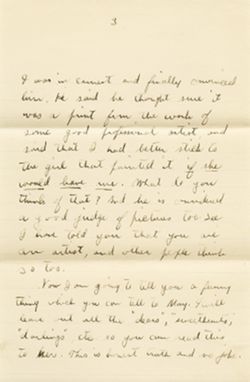 3
I was in earnest and finally convinced
him. He said he thought sure it
was a print from the work of
some good professional artist, and
said that I had better stick to
the girl that painted it if she
would have me. What do you
think of that? And he is considered
a good judge of pictures too. See
I have told you that you are
an artist, and other people think
so too.
Now I am going to tell you a funny
thing which you can tell to May. I will
leave out all the "dears", "sweethearts,"
"darlings" etc so you can read this
to her. This is honest truth and no joke.